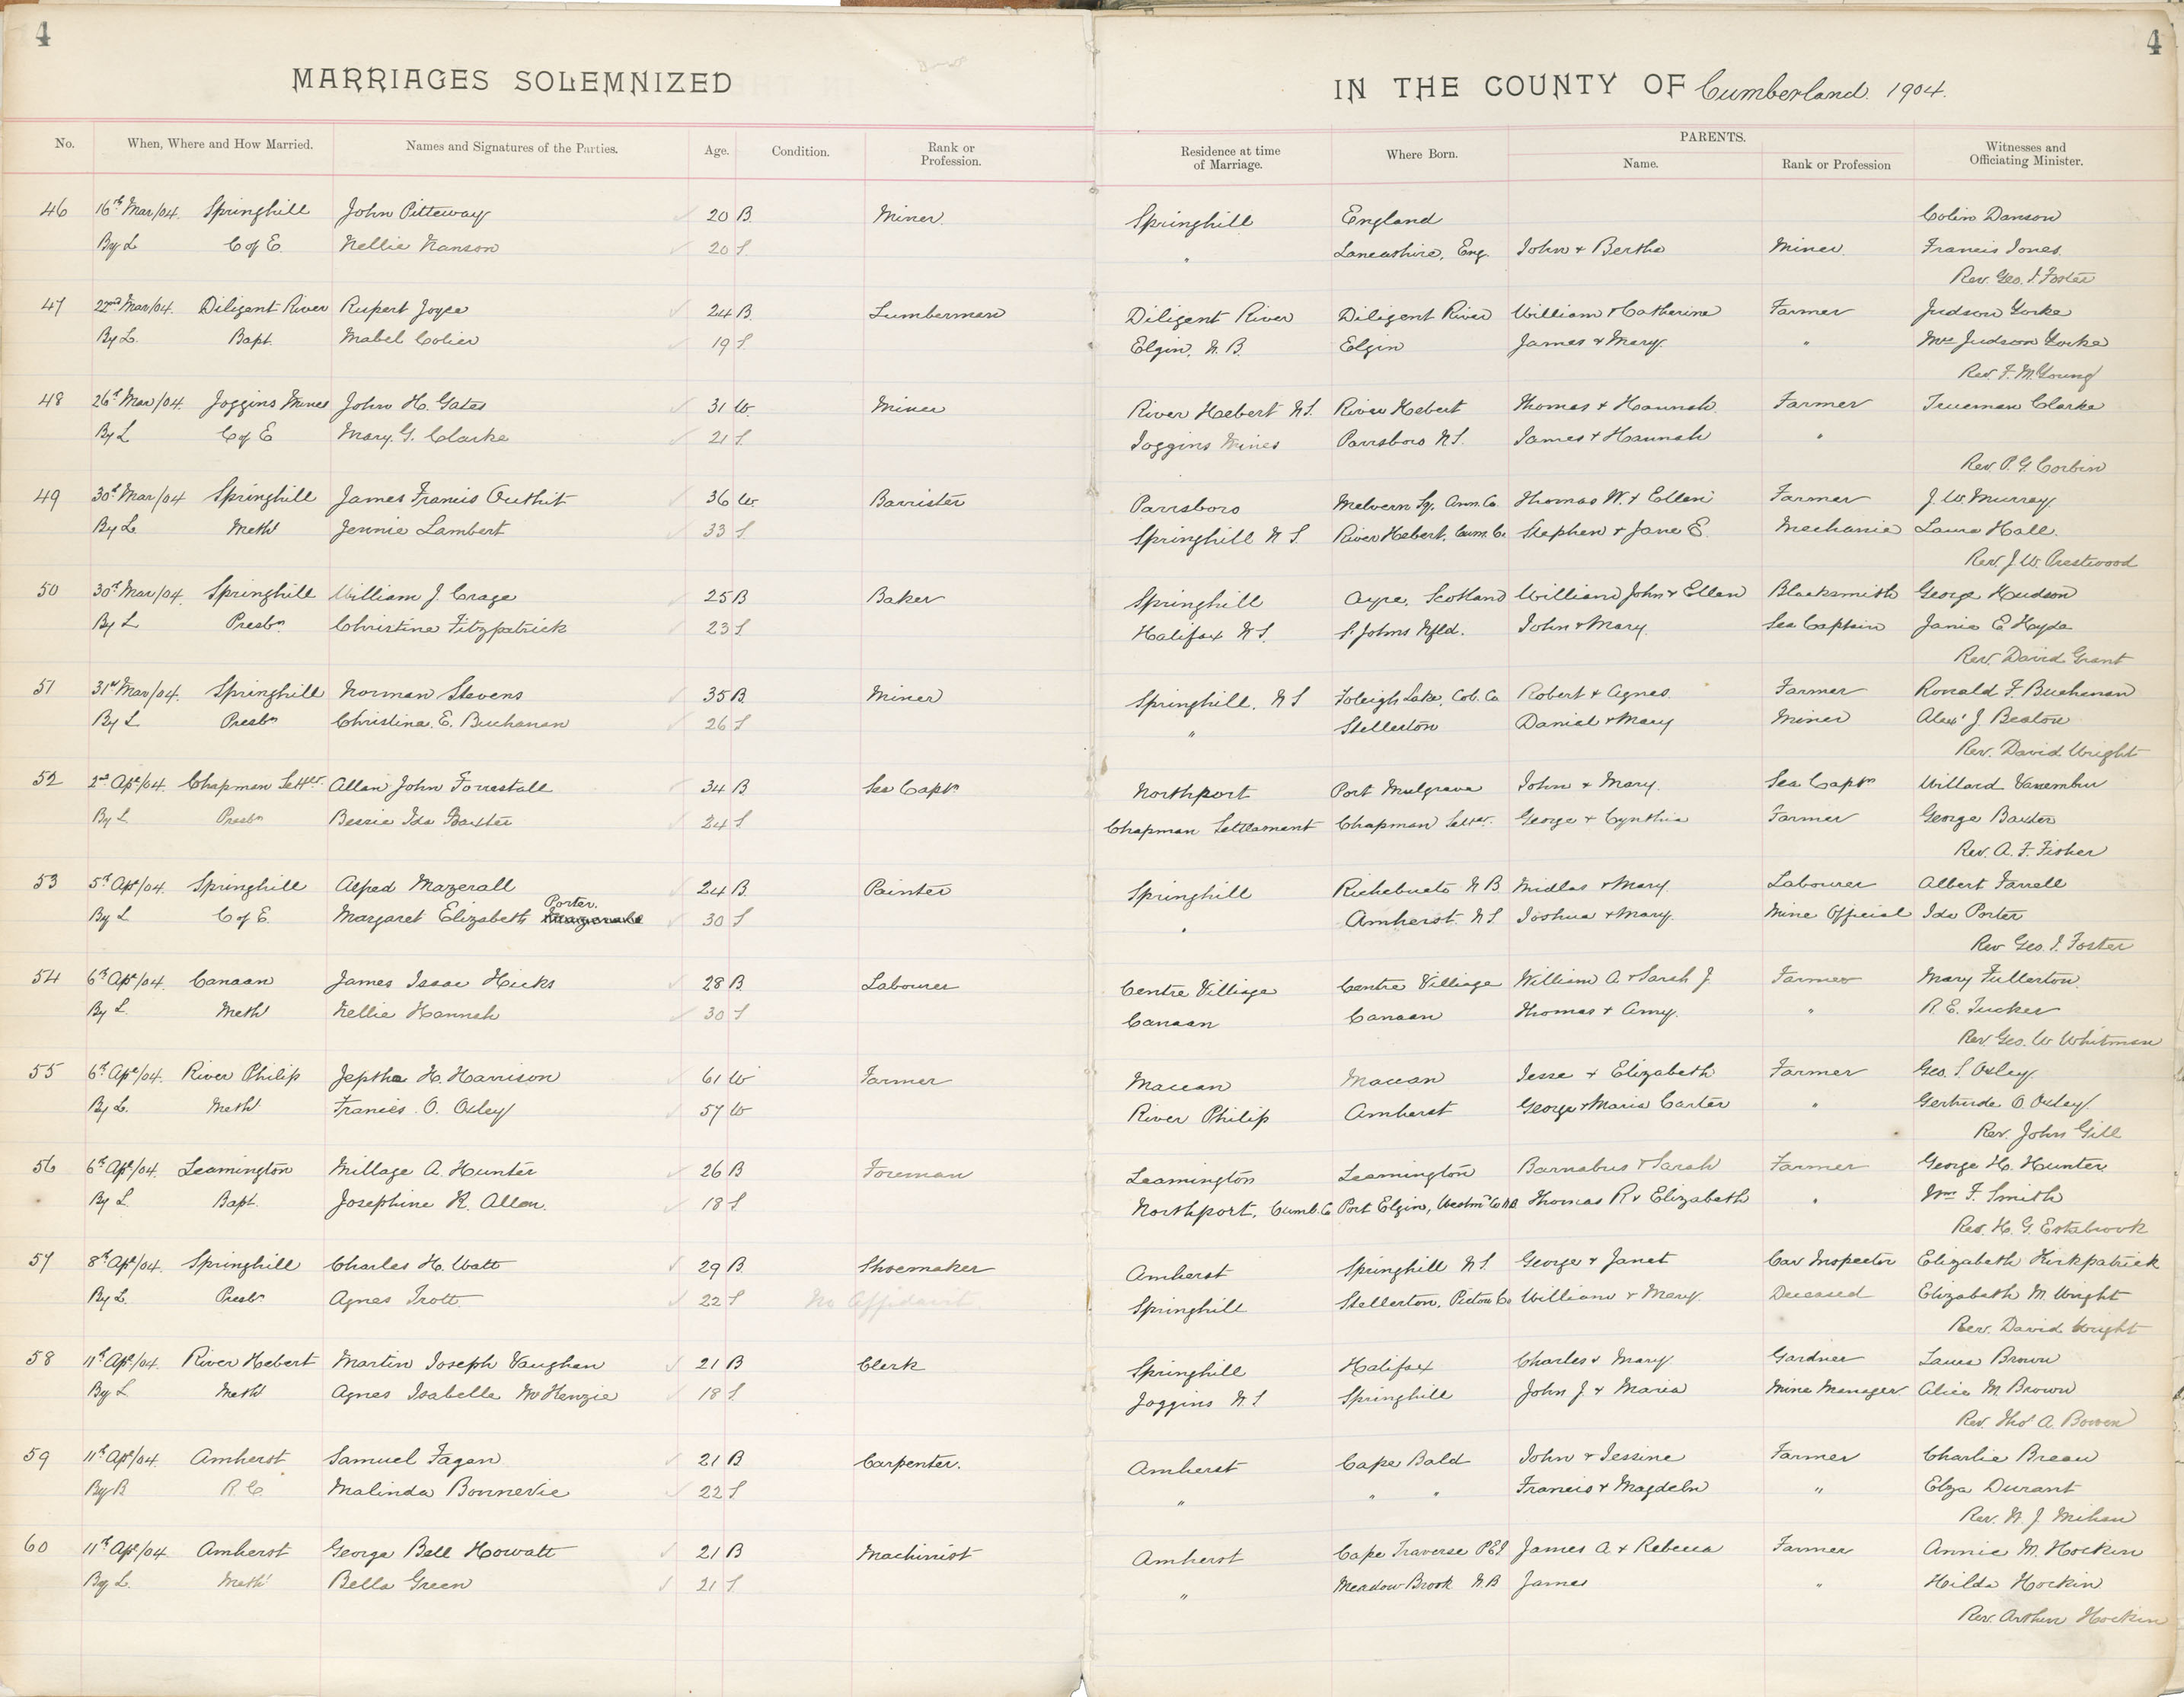 4 4
MARRIAGES SOLEMNIZED IN THE COUNTY OF Cumberland. 1904.
No. When, Where and How Married. Names and Signatures of the Parties. Age. Condition. Rank or Profession. Residence at time of Marriage. Where Born. PARENTS. Name. Rank or Profession Witnesses and Officiating Minister.
46 16th Mar/04. Springhill John Pitteway 20 B. Miner. Springhill England Colin Danson
By L C of E. Nellie Nanson 20 S. " Lancashire, Eng. John + Bertha Miner. Francis Jones.
Rev. Geo. I. Foster
47 22nd Mar/04. Diligent River Rupert Joyce 24 B. Lumberman Diligent River Diligent River William + Catherine Farmer Judson Yorke
By L. Bapt. Mabel Colier 19 S. Elgin, N.B. Elgin James + Mary. " Mrs Judson Yorke
Rev. F. M. Young
48 26th Mar/04. Joggins Mines John H. Gates 31 W. Miner River Hebert N.S. River Hebert Thomas + Hannah Farmer Trueman Clarke
By L C of E Mary. G. Clarke 21 S. Joggins Mines Parrsboro N.S. James + Hannah "
Rev. P. G. Corbin
49 30th Mar/04 Springhill James Francis Outhit 36 W. Barrister Parrsboro Melvern Sq, Ann. Co. Thomas W. + Ellen Farmer J. W. Murray.
By L. Meth Jennie Lambert 33 S. Springhill N S. River Hebert, Cum. Co. Stephen + Jane E. Mechanic Laura Hall.
Rev. J. W. Prestwood
50 30th Mar/04. Springhill William J. Crage 25 B Baker Springhill Ayre, Scotland William John + Ellen Blacksmith George Hudson
By L Presbn Christina Fitzpatrick 23 S. Halifax N S. St Johns Nfld. John + Mary. Sea Captain Janie E. Hyde
Rev. David Grant
51 31st Mar/04. Springhill Norman Stevens 35 B. Miner Springhill, N S Foleigh Lake, Col. Co Robert + Agnes. Farmer Ronald F. Buchanan
By L Presbn Christina. E. Buchanan 26 S. " Stellerton Daniel + Mary Miner Alexr J. Beaton
Rev. David Wright
52 2nd Apl/04. Chapman Settler Allan John Forrestall 34 B Sea Captn Northport Port Mulgrave John + Mary. Sea Captn Willard
By L Presbn Bessie Ida Baxter 24 S. Chapman Settlement Chapman Settler. George + Cynthia Farmer George Baxter
Rev. A. F. Fisher
53 5th Apl/04. Springhill Alfred Mazerall 24 B. Painter Springhill Richebucto N B Midlas + Mary. Labourer Albert Farrell
Porter.
By L C of E. Margaret Elizabeth 30 S " Amherst N.S. Joshua + Mary. Mine Official Ida Porter
Rev Geo. I. Foster
54 6th Apl/04. Canaan James Isaac Hicks 28 B. Labourer Centre Villiage Centre Villiage William A. + Sarah J. Farmer Mary Fullerton.
By L. Meth Nellie Hannah 30 S Canaan Canaan Thomas + Amy. " R. E. Tucker
Rev. Geo. W Whitman
55 6th Apl/04. River Philip Jeptha H. Harrison 61 W Farmer Maccan Maccan Jesse + Elizabeth Farmer Geo. S. Oxley.
By L. Meth Francis. O. Oxley 57 W River Philip Amherst George + Maria Carter " Gertrude O. Oxley.
Rev. John Gill
56 6th Apl/04. Leamington Millage A. Hunter 26 B Foreman Leamington Leamington Barnabus + Sarah Farmer George H. Hunter
By L. Bapt. Josephine R. Allen. 18 S Northport, Cumb. Co Port Elgin, Westmd Co N.B Thomas R + Elizabeth " Wm F. Smith
Rev. H. G. Estabrook
57 8th Apl/04. Springhill Charles H. Watt 29 B. Shoemaker Amherst Springhill N S. George + Janet Car Inspector Elizabeth Kirkpatrick
By L. Presbn Agnes Trott 22 S No Affidavit Springhill Stellerton, Pictou Co William + Mary. Deceased Elizabeth M. Wright
Rev. David Wright
58 11th Apl/04. River Hebert Martin Joseph Vaughan 21 B Clerk Springhill Halifax Charles + Mary. Gardner Laura Brown
By L Meth Agnes Isabella McKenzie 18 S. Joggins N. S Springhill John J. + Maria Mine Manager. Alice M. Brown
Rev. Thos A. Bowen
59 11th Apl/04. Amherst Samuel Fagan 21 B. Carpenter. Amherst Cape Bald John + Jessine Farmer Charlie Breau
By B R. C. Malinda Bonnevie 22 S. " " " Francis + Magdeln " Elza Durant
Rev. N. J. Mihan
60 11th Apl/04. Amherst George Bell Howatt 21 B Machinist Amherst Cape Traverse PEI James A. + Rebecca Farmer Annie M. Hockin
By L. Meth Bella Green 21 S. " Meadow Brook N.B James " Hilda Hockin
Rev. Arthur Hockin